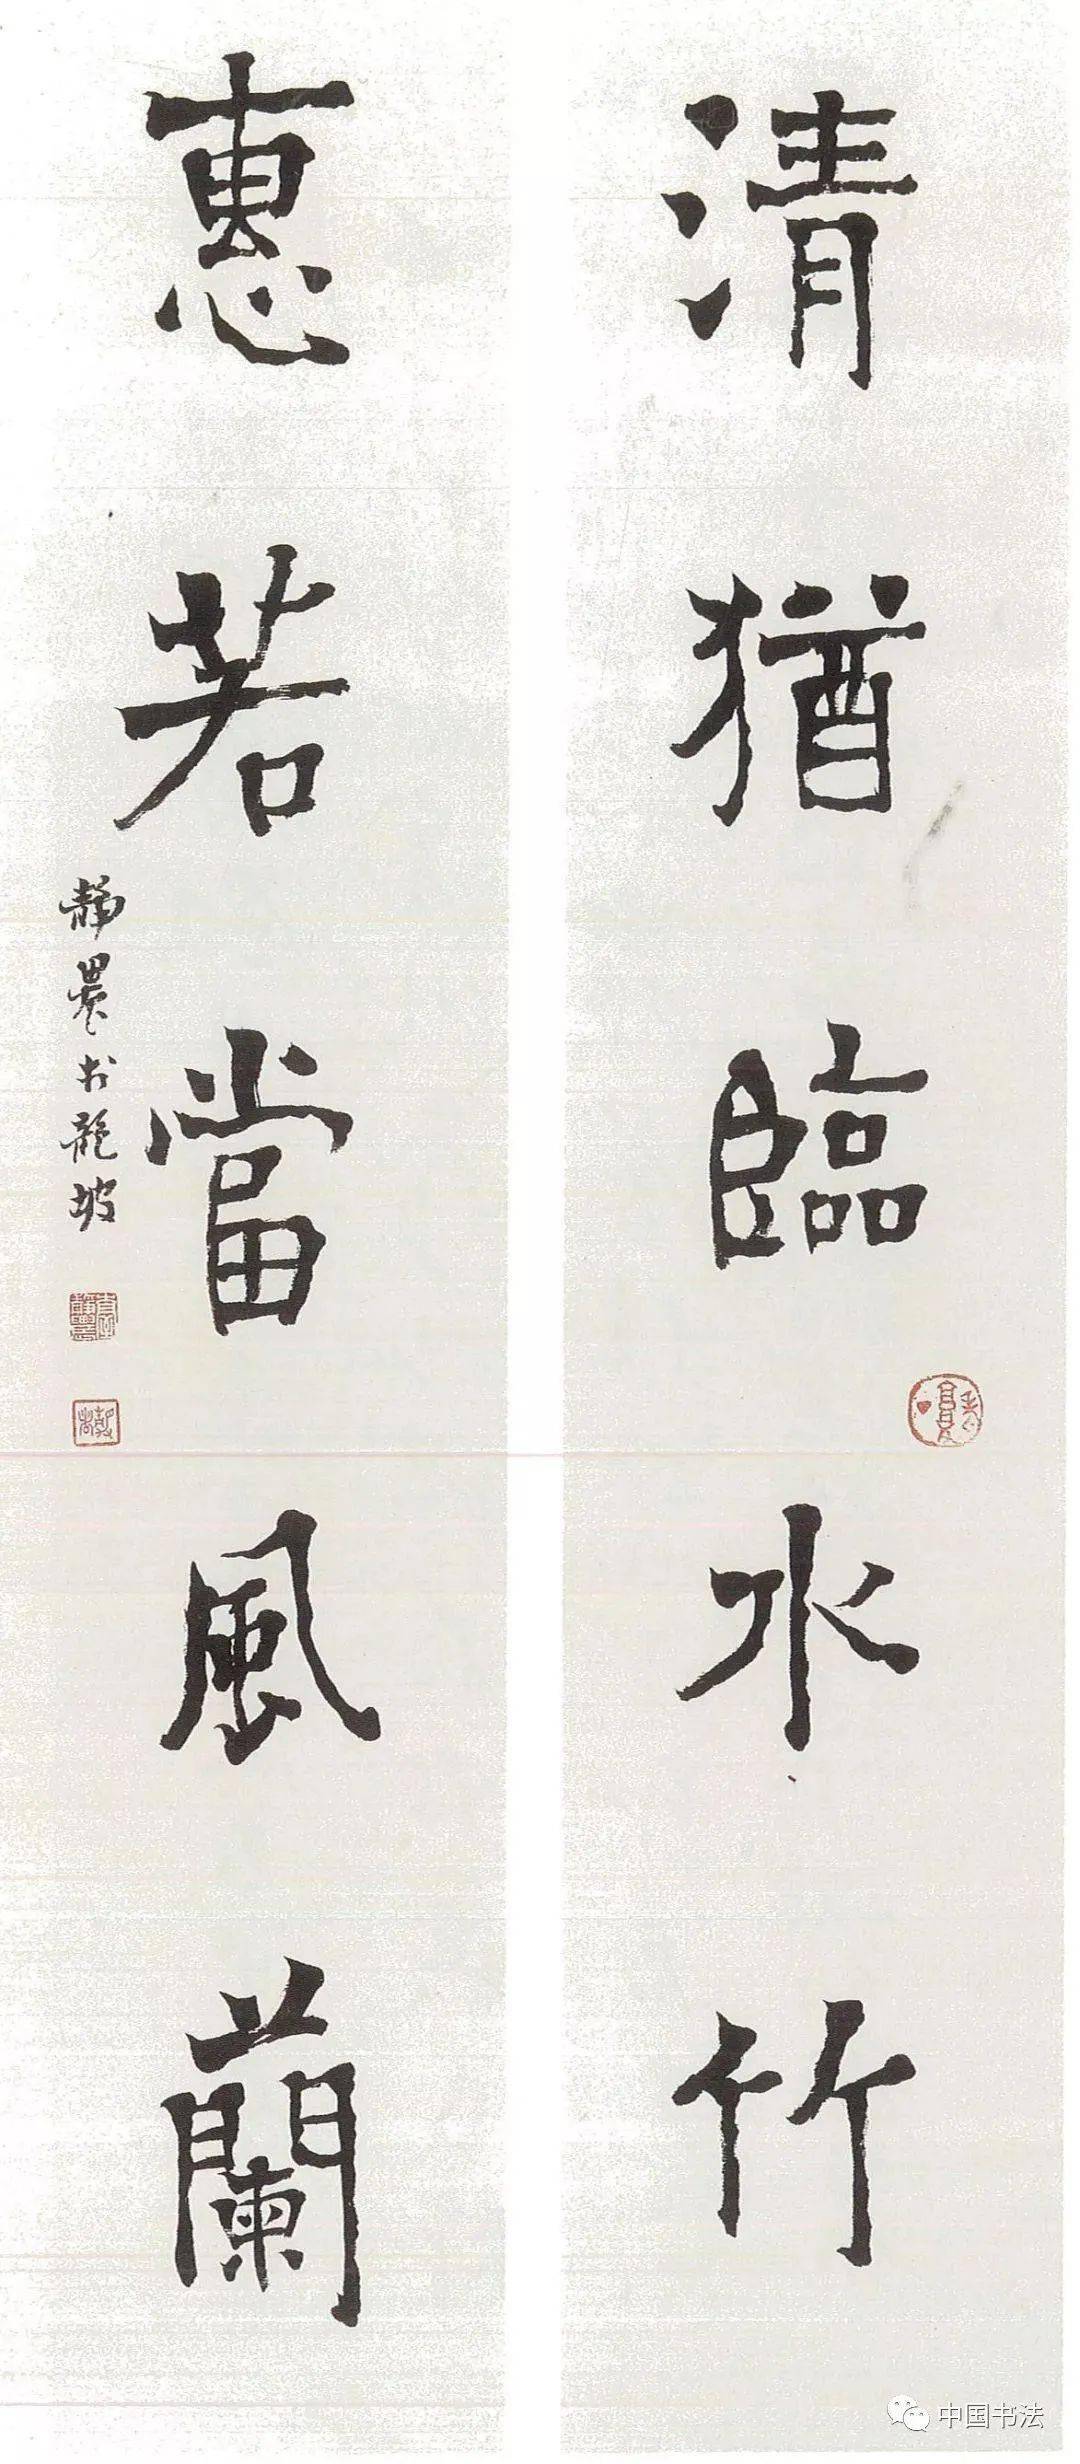 清猶臨水竹
惠若當風蘭
靜農書於龍坡
臺靜農
中国书法